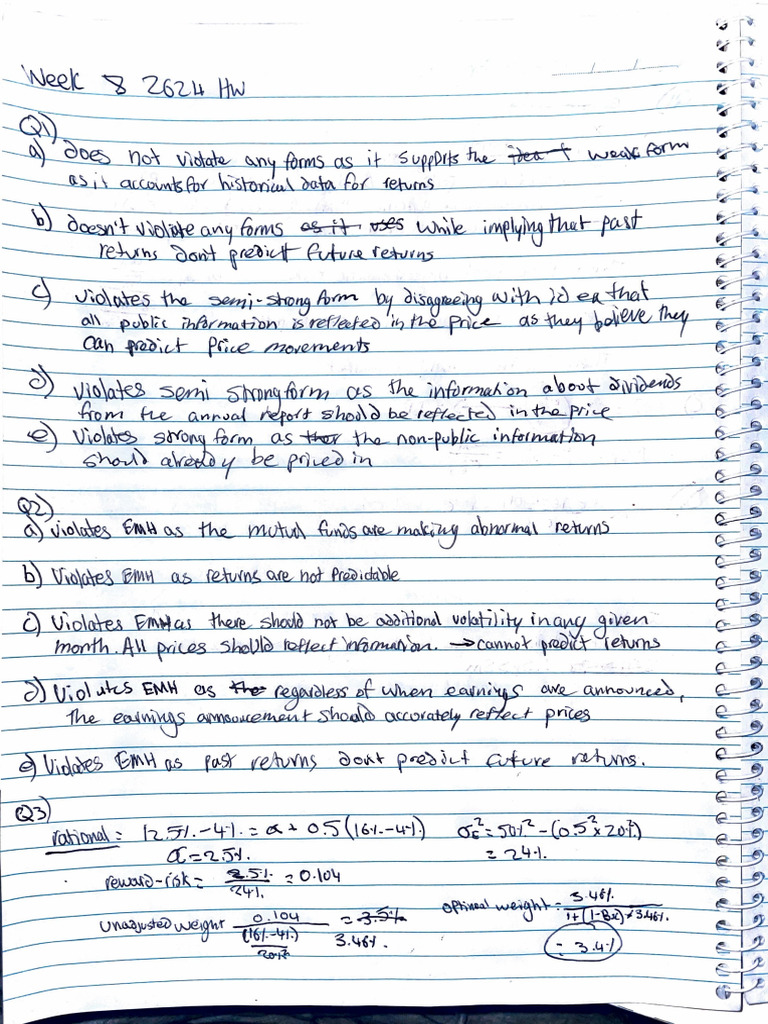 Week 8 2624 HW
Q1)
a) does not violate any forms as it supports the idea f weak form
as it accounts for historical data for returns
b) doesn't violate any forms as it uses while implying that past
returns dont predict future returns
c) violates the semi-strong form by disagreeing with idea that
all public information is reflected in the price as they believe they
can predict price movements
d) violates semi strong form as the information about dividends
from the annual report should be reflected in the price
e) violates strong form as that the non-public information
should already be priced in
Q2)
a) violates EMH as the mutual funds are making abnormal returns
b) Violates EMH as returns are not predidable
c) Violates EMH as there should not be additional volatility in any given
month. All prices should reflect information. → cannot predict returns
d) Violates EMH as the regardless of when earnings are announced,
the earnings announcement should accurately reflect prices
e) Violates EMH as past returns dont predict future returns.
Q3)
rational = 12.5% - 4% = α + 0.5 (16% - 4%) σε² = 50%² - (0.5² x 20%²)
α = 2.5% = 24%
reward-risk = 2.5% / 24% = 0.104
unadjusted weight 0.104 / ((16% - 4%) / 20%²) = 3.5% 3.46%
optimal weight = 3.46% / 1 + (1 - Bx) * 3.46%
= 3.4%